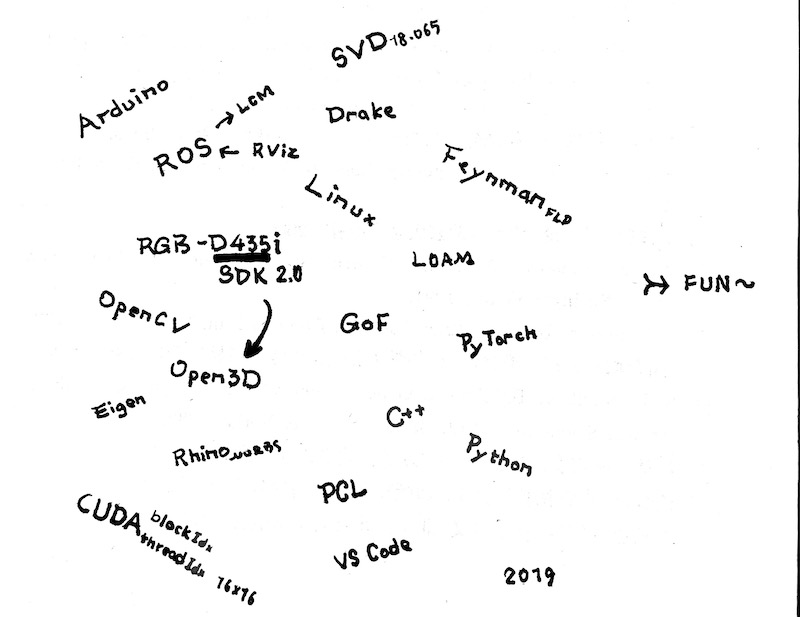 SVD 18.065
Arduino
→ LCM
Drake
ROS ← RViz
Feynman FLP
Linux
RGB-D435i
SDK 2.0
LOAM
→ FUN~
OpenCV
GoF
PyTorch
Open3D
Eigen
C++
Rhino NURBS
Python
PCL
CUDA blockIdx
threadIdx 16x16
VS Code
2019